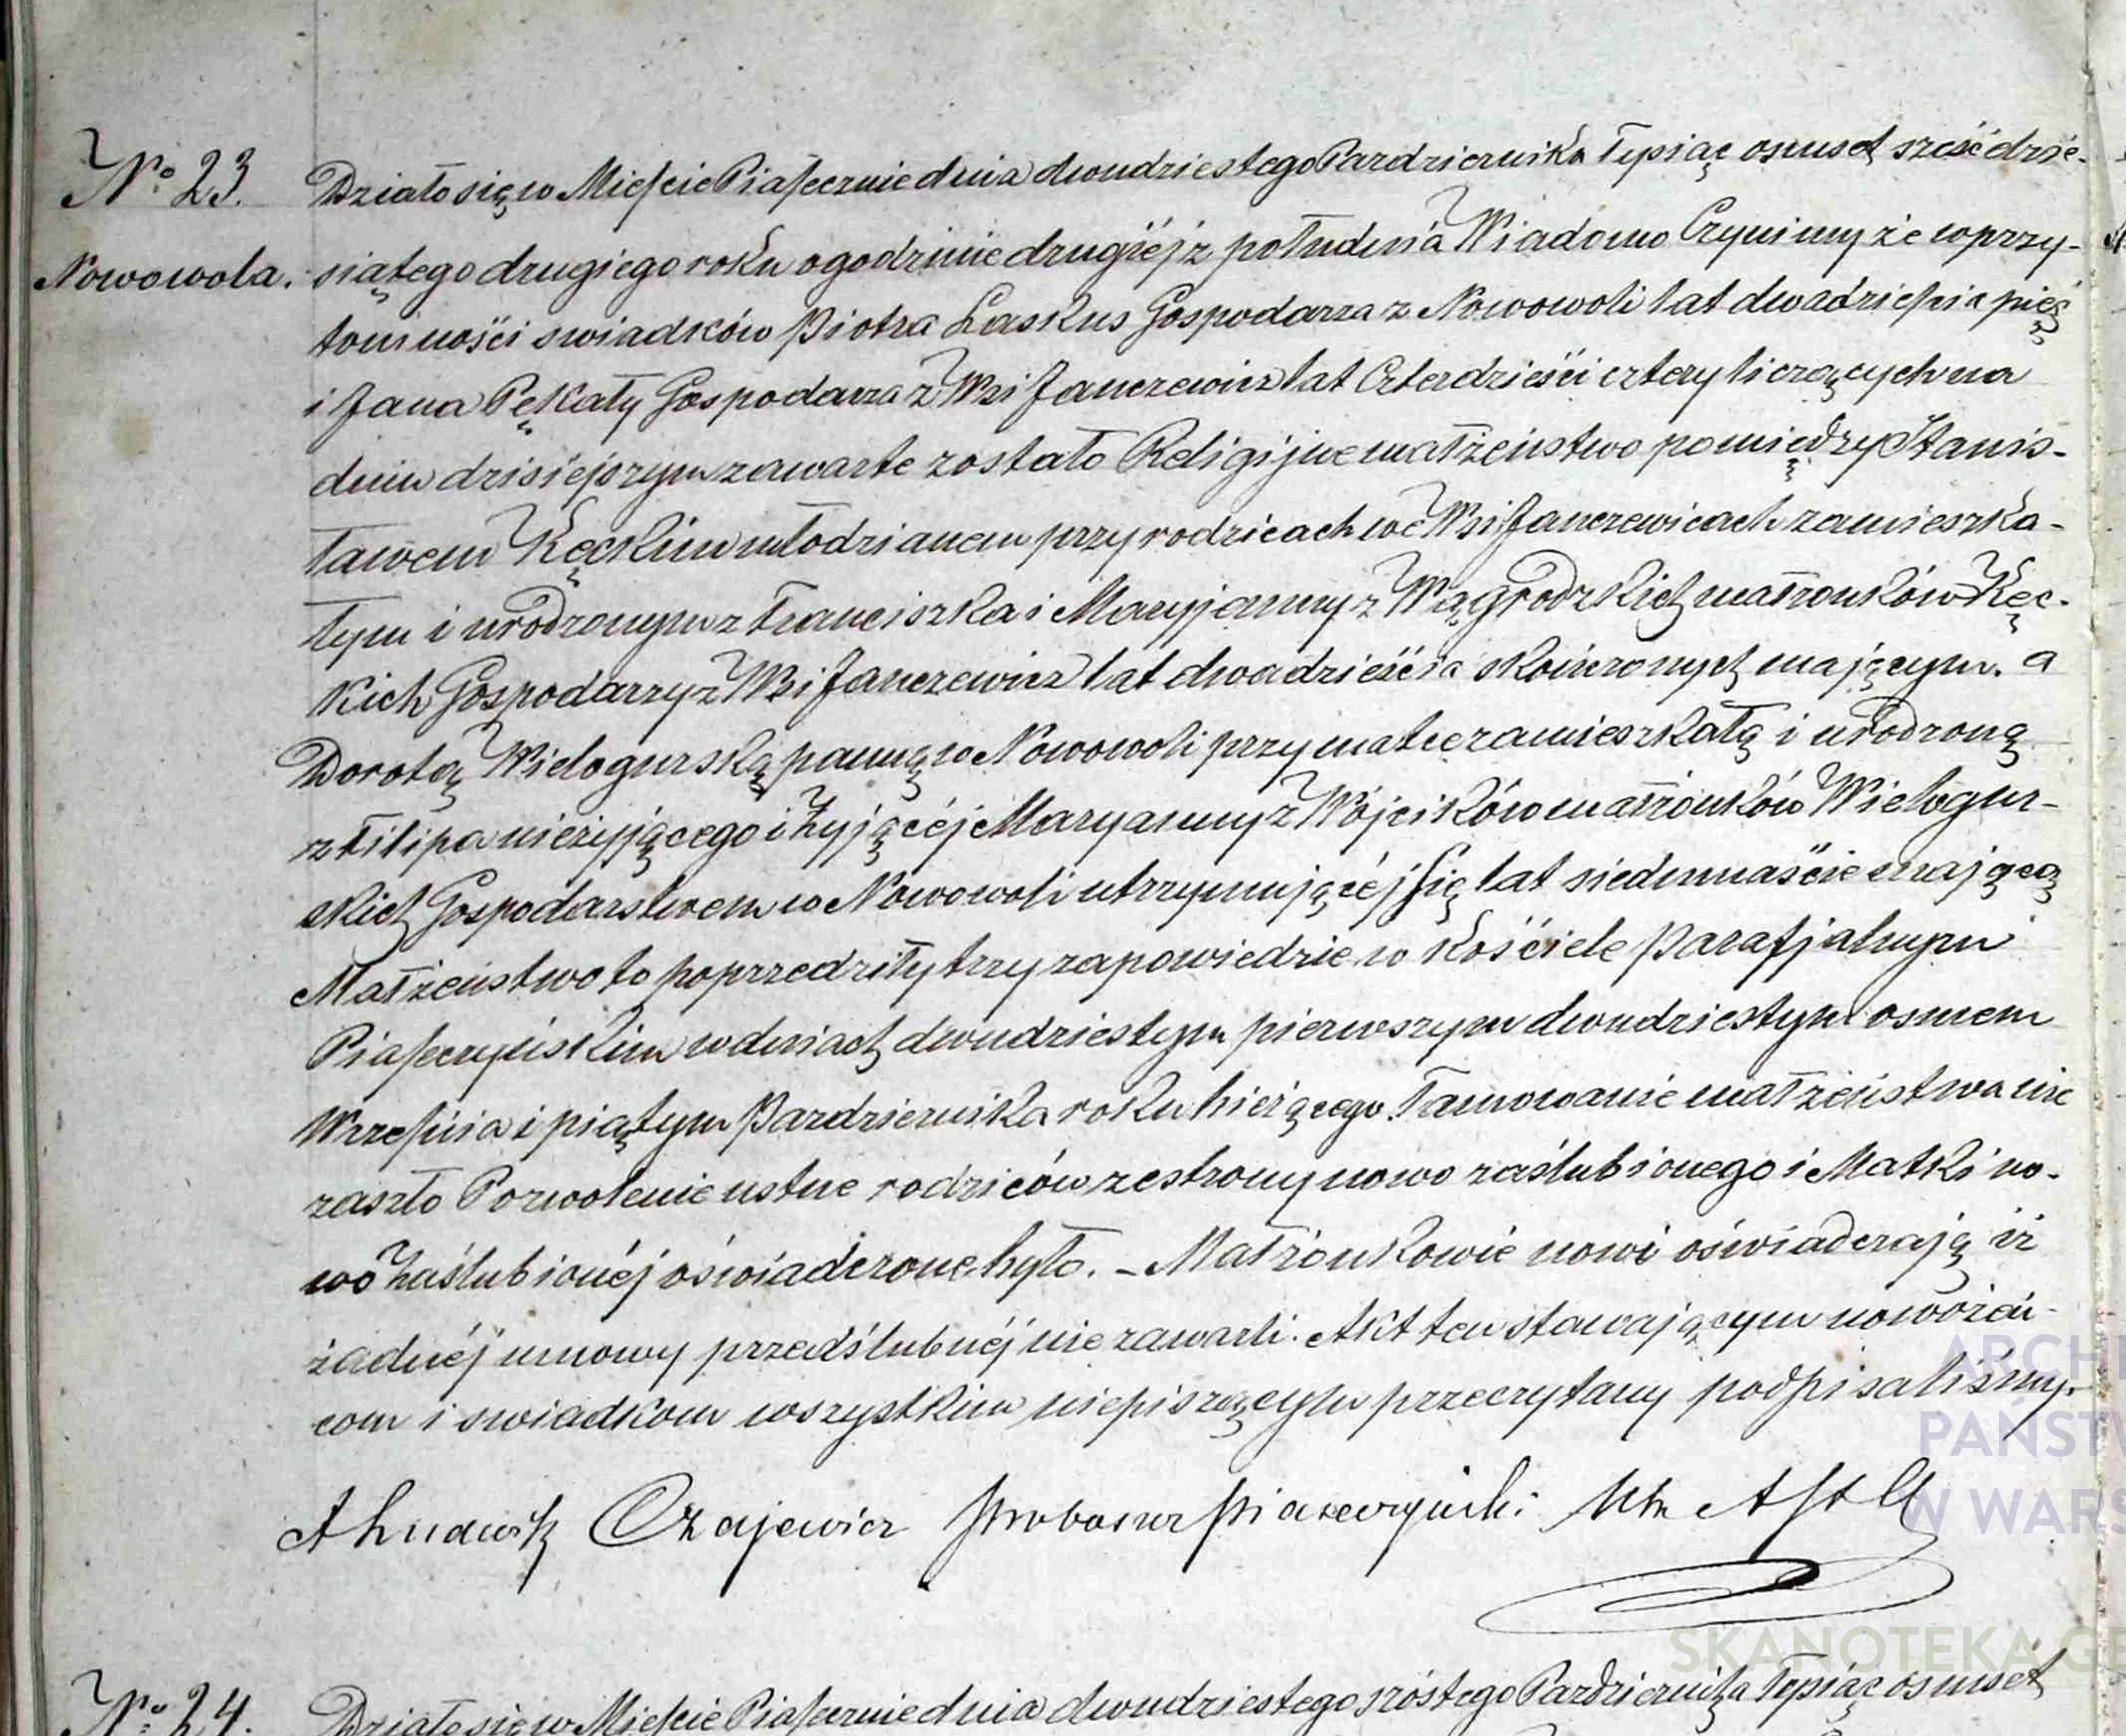 No. 23. Działo się w Mieście Piasecznie dnia dwudziestego Pazdziernika Tysiąc osmset sześćdzie-
Nowowola. siątego drugiego roku o godzinie drugiéj z południa Wiadomo Czynimy że w przy-
tomności swiadków Piotra Laskus Gospodarza z Nowowoli lat dwadzieścia pięć
i Jana Pękały Gospodarza z Wsi Janczewicz lat Czterdzieści cztery liczących na
dniu dzisiejszym zawarte zostało Religijne małżeństwo pomiędzy Stanis-
ławem Kęckim młodzianem przy rodzicach we Wsi Janczewicach zamieszka-
łym i urodzonym z Franciszka i Maryjanny z Wągrodzkich małżonków Kęc-
kich Gospodarzy z Wsi Janczewicz lat dwadzieścia skończonych mającym. a
Dorotą Wielogurską panną w Nowowoli przy matce zamieszkałą i urodzoną
z Filipa nieżyjącego i Żyjącéj Maryanny z Wójcików małżonków Wielogur-
skich Gospodarstwem w Nowowoli utrzymującéj się lat siedmnaście mającą
Małżeństwo to poprzedziły trzy zapowiedzie w Kościele Parafjalnym
Piaseczyńskim w dniach dwudziestym pierwszym dwudziestym osmem
Wrzesnia i piątym Pazdziernika roku bieżącego. Tamowanie małżeństwa nie
zaszło Pozwolenie ustne rodziców ze strony nowo zaślubionego i Matki no-
wo Zaślubionéj oświadczone było. – Małżonkowie nowi oświadczają iż
żadnéj umowy przedślubnéj nie zawarli. Akt ten stawającym nowożeń-
com i swiadkom wszystkim niepiszącym przeczytany podpisaliśmy.
X Ludwik Czajewicz Proboszcz Piaseczyński. Utr A St C
No. 24. Działo się w Mieście Piasecznie dnia dwudziestego szóstego Pazdziernika Tysiąc osmset
ARCHI
PAŃSTW
W WARS
SKANOTEKA GE